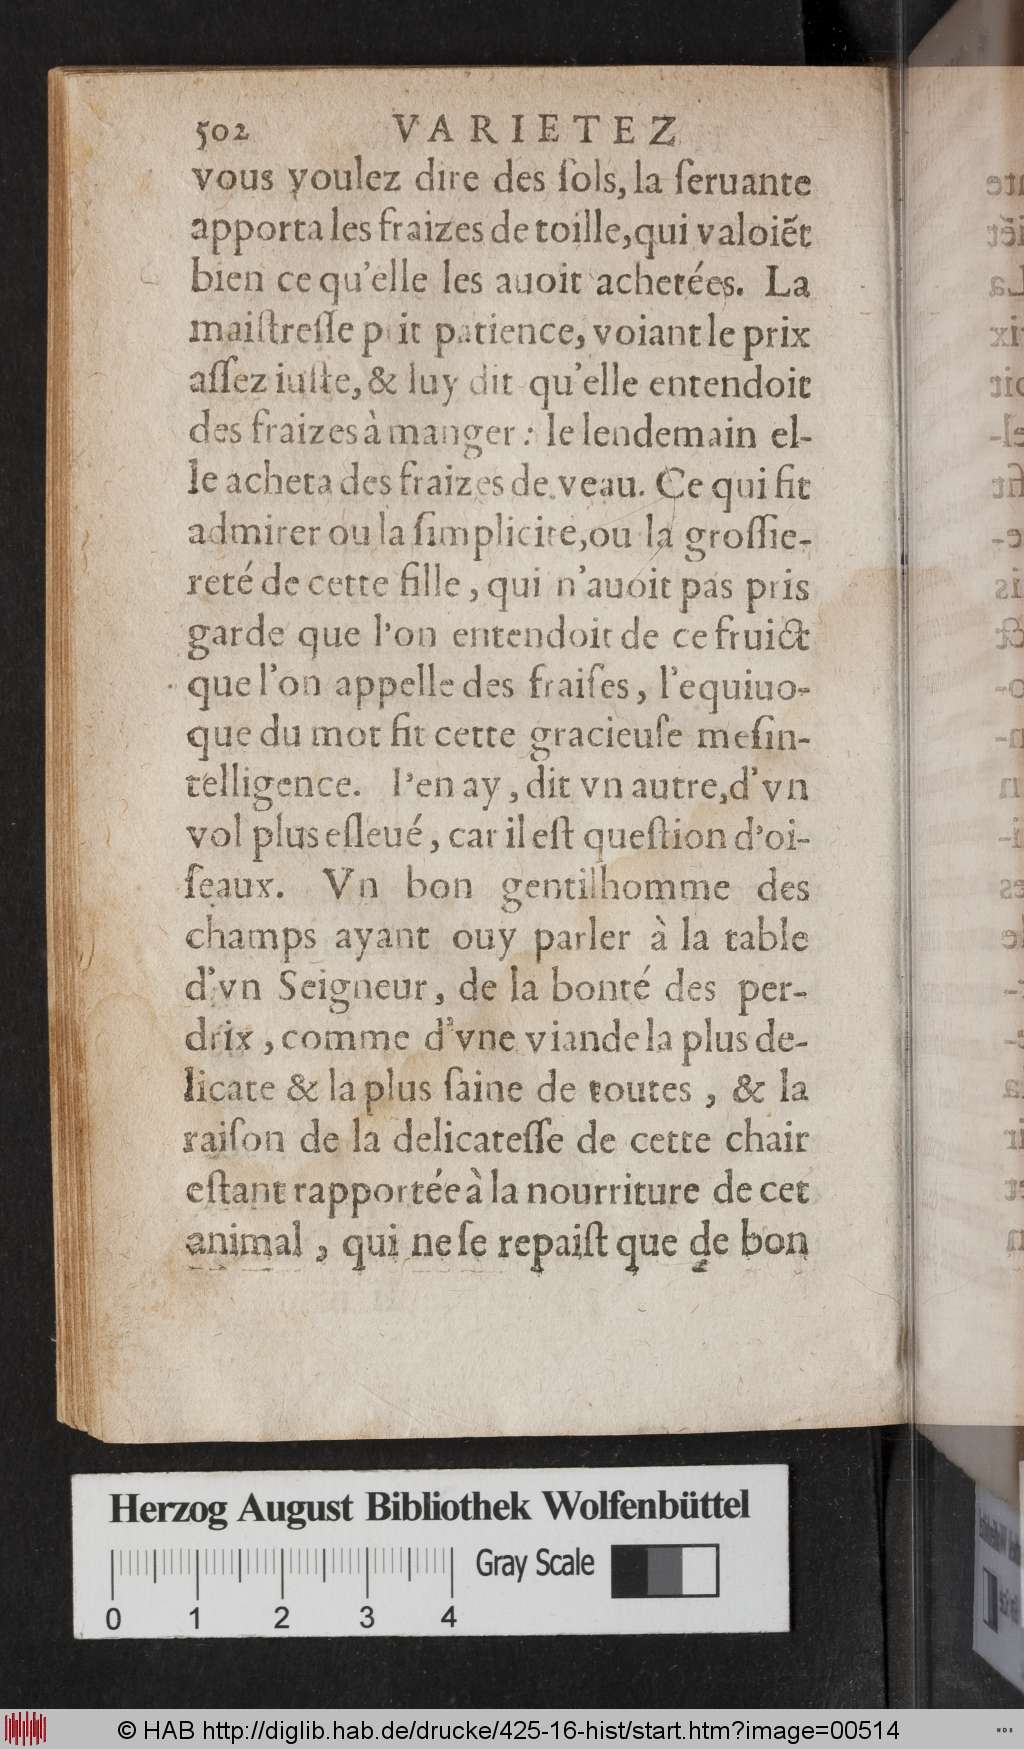 502 VARIETEZ
vous voulez dire des ſols, la ſeruante
apporta les fraizes de toille, qui valoiẽt
bien ce qu'elle les auoit achetées. La
maiſtreſſe prit patience, voiant le prix
aſſez iuſte, & luy dit qu'elle entendoit
des fraizes à manger : le lendemain el-
le acheta des fraizes de veau. Ce qui fit
admirer ou la ſimplicité, ou la groſſie-
reté de cette fille, qui n'auoit pas pris
garde que l'on entendoit de ce fruict
que l'on appelle des fraiſes, l'equiuo-
que du mot fit cette gracieuſe meſin-
telligence. I'en ay, dit vn autre, d'vn
vol plus eſleué, car il eſt queſtion d'oi-
ſeaux. Vn bon gentilhomme des
champs ayant ouy parler à la table
d'vn Seigneur, de la bonté des per-
drix, comme d'vne viande la plus de-
licate & la plus ſaine de toutes, & la
raiſon de la delicateſſe de cette chair
eſtant rapportée à la nourriture de cet
animal, qui ne ſe repaiſt que de bon
Herzog August Bibliothek Wolfenbüttel
Gray Scale
0 1 2 3 4
© HAB http://diglib.hab.de/drucke/425-16-hist/start.htm?image=00514